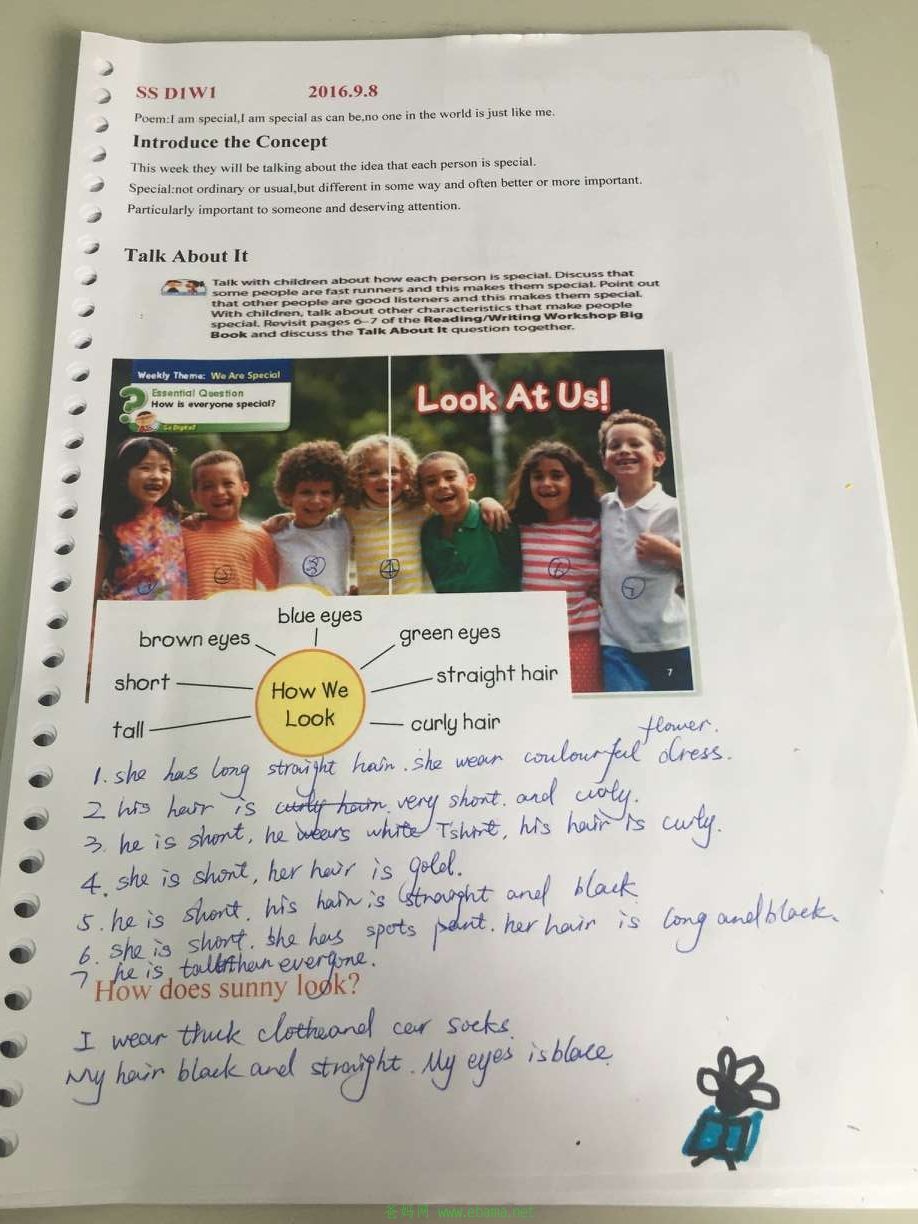 SS D1W1 2016.9.8
Poem:I am special,I am special as can be,no one in the world is just like me.
Introduce the Concept
This week they will be talking about the idea that each person is special.
Special:not ordinary or usual,but different in some way and often better or more important.
Particularly important to someone and deserving attention.
Talk About It
Talk with children about how each person is special. Discuss that
some people are fast runners and this makes them special. Point out
that other people are good listeners and this makes them special.
With children, talk about other characteristics that make people
special. Revisit pages 6–7 of the Reading/Writing Workshop Big
Book and discuss the Talk About It question together.
Weekly Theme: We Are Special
Essential Question
How is everyone special?
Go Digital!
Look At Us!
3 4 6 7
7
blue eyes
brown eyes green eyes
short straight hair
How We
Look
tall curly hair
flower.
1. she has long straight hair. she wear coulourful dress.
2 his hair is curly hair. very short. and
3. he is short, he wears white Tshirt, his hair is curly.
4. she is short, her hair is gold.
5. he is short. his hair is straight and black
6. she is short. she has spots pant. her hair is long and black.
7 he is than everyone.
How does sunny look?
I wear thick clothe and car socks.
My hair black and straight. My eyes is
爸妈网 www.ebama.net